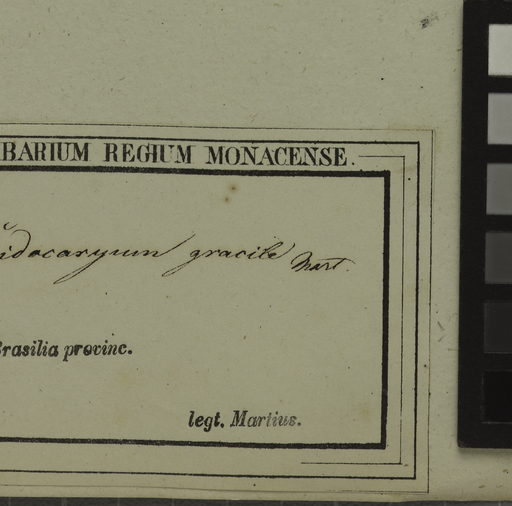 BARIUM REGIUM MONACENSE.
idocaryum gracile Mart.
Brasilia provinc.
legt. Martius.